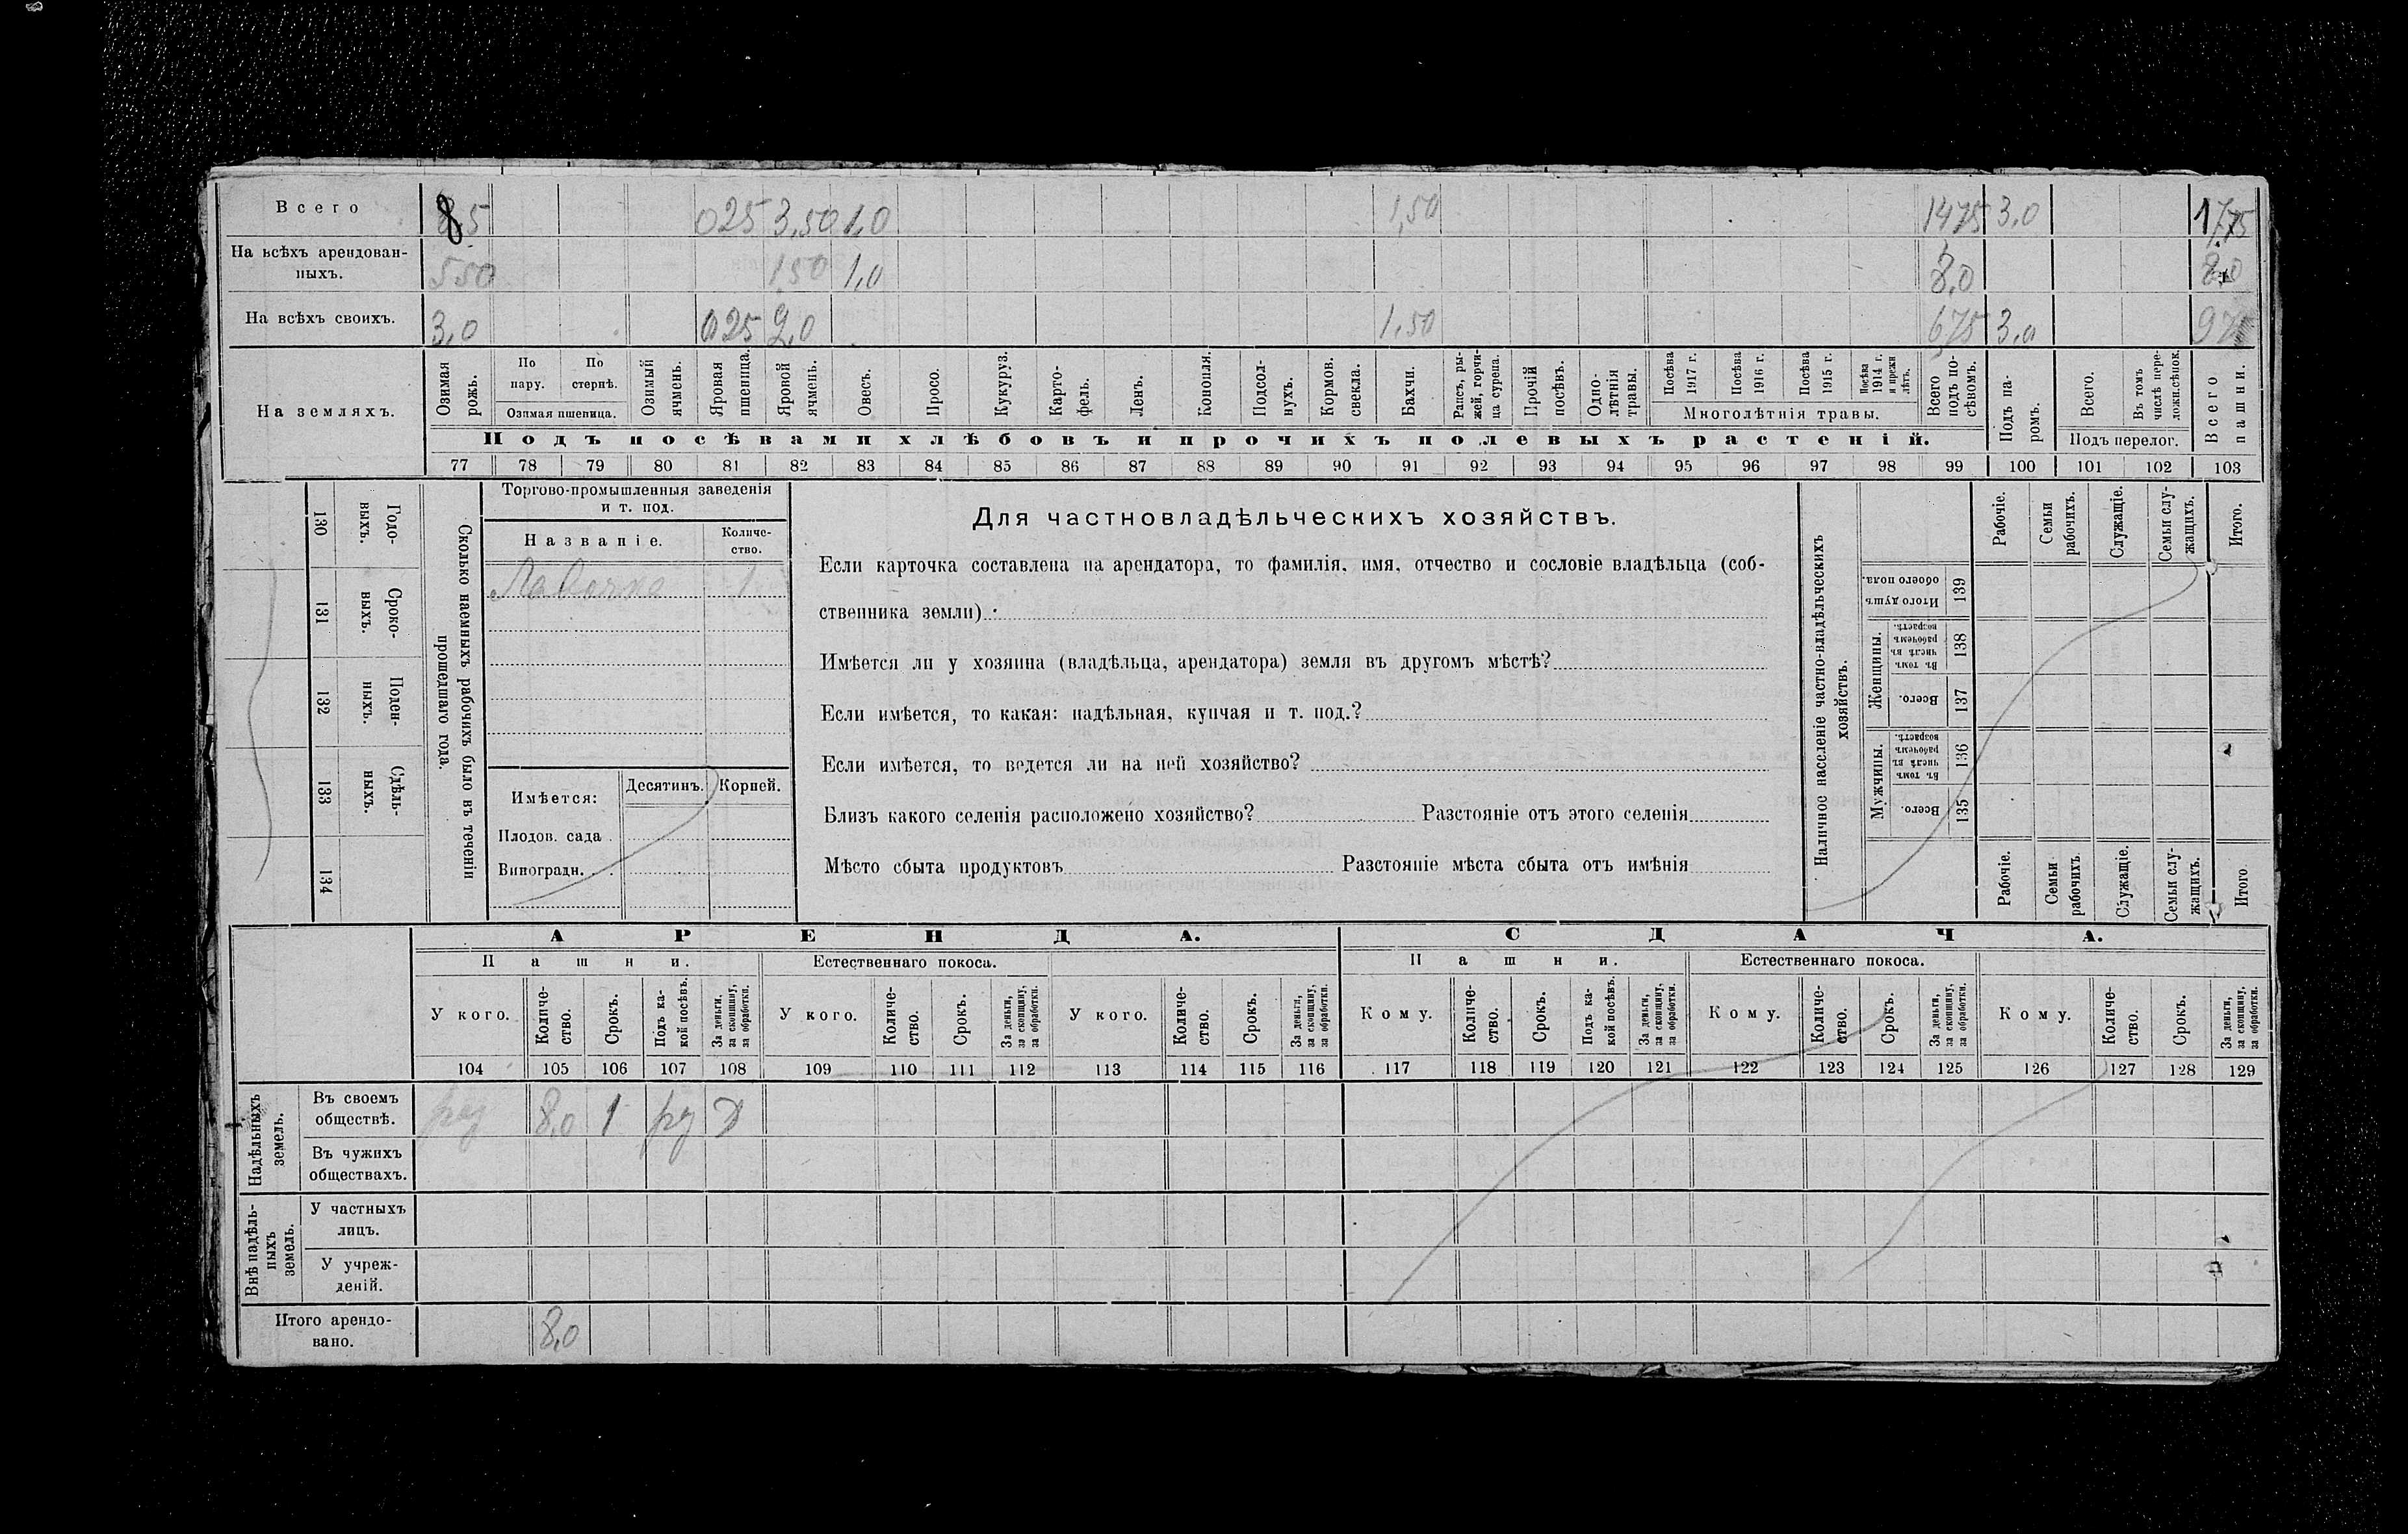 Всего 8,5 025 3,50 1,0 1,50 1475 3,0 17,75
На всѣхъ арендован-
ныхъ. 550 1,50 1,0 8,0 8,0
На всѣхъ своихъ. 3,0 025 2,0 1,50 675 3,0 975
На земляхъ.
Озимая рожь.
По пару.
По стернѣ.
Озимая пшеница.
Озимый ячмень.
Яровая пшеница.
Яровой ячмень.
Овесъ.
Просо.
Кукуруз.
Карто-
фель.
Ленъ.
Конопля.
Подсол-
нухъ.
Кормов.
свекла.
Бахчи.
Рапсъ, ры-
жей, горчи-
ца сурепа.
Прочій
посѣвъ.
Одно-
лѣтнія
травы.
Посѣва
1917 г.
Посѣва
1916 г.
Посѣва
1915 г.
Посѣва
1914 г.
и прежн
лѣтъ.
Многолѣтнія травы.
Всего
подъ по-
сѣвомъ.
Подъ па-
ромъ.
Всего.
Въ томъ
числѣ пере-
ложн.сѣнок.
Подъ перелог.
Всего
пашни.
Подъ посѣвами хлѣбовъ и прочихъ полевыхъ растеній.
77 78 79 80 81 82 83 84 85 86 87 88 89 90 91 92 93 94 95 96 97 98 99 100 101 102 103
130 Годо-
выхъ.
131 Сроко-
выхъ.
132 Поден-
ныхъ.
133 Сдѣль-
ныхъ.
134
Сколько наемныхъ рабочихъ было въ теченіи
прошедшаго года.
Торгово-промышленныя заведенія
и т. под.
Названіе.
Количе-
ство.
Лавочка 1
Имѣется: Десятинъ. Корней.
Плодов. сада .
Виноградн. .
Для частновладѣльческихъ хозяйствъ.
Если карточка составлена на арендатора, то фамилія, имя, отчество и сословіе владѣльца (соб-
ственника земли)
Имѣется ли у хозяина (владѣльца, арендатора) земля въ другомъ мѣстѣ?
Если имѣется, то какая: надѣльная, купчая и т. под.?
Если имѣется, то ведется ли на ней хозяйство?
Близъ какого селенія расположено хозяйство? Разстояніе отъ этого селенія
Мѣсто сбыта продуктовъ Разстояніе мѣста сбыта отъ имѣнія
Наличное населеніе частно-владѣльческихъ
хозяйствъ.
Рабочіе.
Семьи
рабочихъ.
Служащіе.
Семьи слу-
жащихъ.
Итого.
Итого душъ
обоего пола. 139
Женщины.
Въ томъ
числѣ въ
рабочемъ
возрастѣ. 138
Всего. 137
Мужчины.
Въ томъ
числѣ въ
рабочемъ
возрастѣ. 136
Всего. 135
Рабочіе.
Семьи
рабочихъ
Служащіе.
Семьи слу-
жащихъ.
Итого
АРЕНДА. СДАЧА.
Пашни. Естественнаго покоса. Пашни. Естественнаго покоса.
У кого.
Количе-
ство.
Срокъ.
Подъ ка-
кой посѣвъ.
За деньги,
за скопщину,
за обработки.
У кого.
Количе-
ство.
Срокъ.
За деньги,
за скопщину,
за обработки.
У кого.
Количе-
ство.
Срокъ.
За деньги,
за скопщину,
за обработки.
Кому.
Количе-
ство.
Срокъ.
Подъ ка-
кой посѣвъ.
За деньги,
за скопщину,
за обработки.
Кому.
Количе-
ство.
Срокъ.
За деньги,
за скопщину,
за обработки.
Кому.
Количе-
ство.
Срокъ.
За деньги,
за скопщину,
за обработки.
104 105 106 107 108 109 110 111 112 113 114 115 116 117 118 119 120 121 122 123 124 125 126 127 128 129
Надѣльныхъ
земель.
Въ своемъ
обществѣ. 8,0 1
Въ чужихъ
обществахъ.
Внѣ надѣль-
ныхъ
земель.
У частныхъ
лицъ.
У учреж-
деній.
Итого арендо-
вано. 8,0